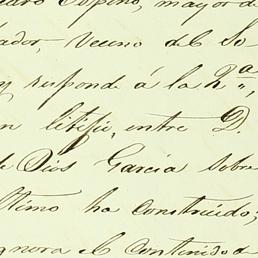 Espino, mayor de
ador, vecino del Lo
y responde á la 2ª,,
n litifio, entre D.
de Dios Garcia sobre
ltimo ha construido;
gnora el contenido de